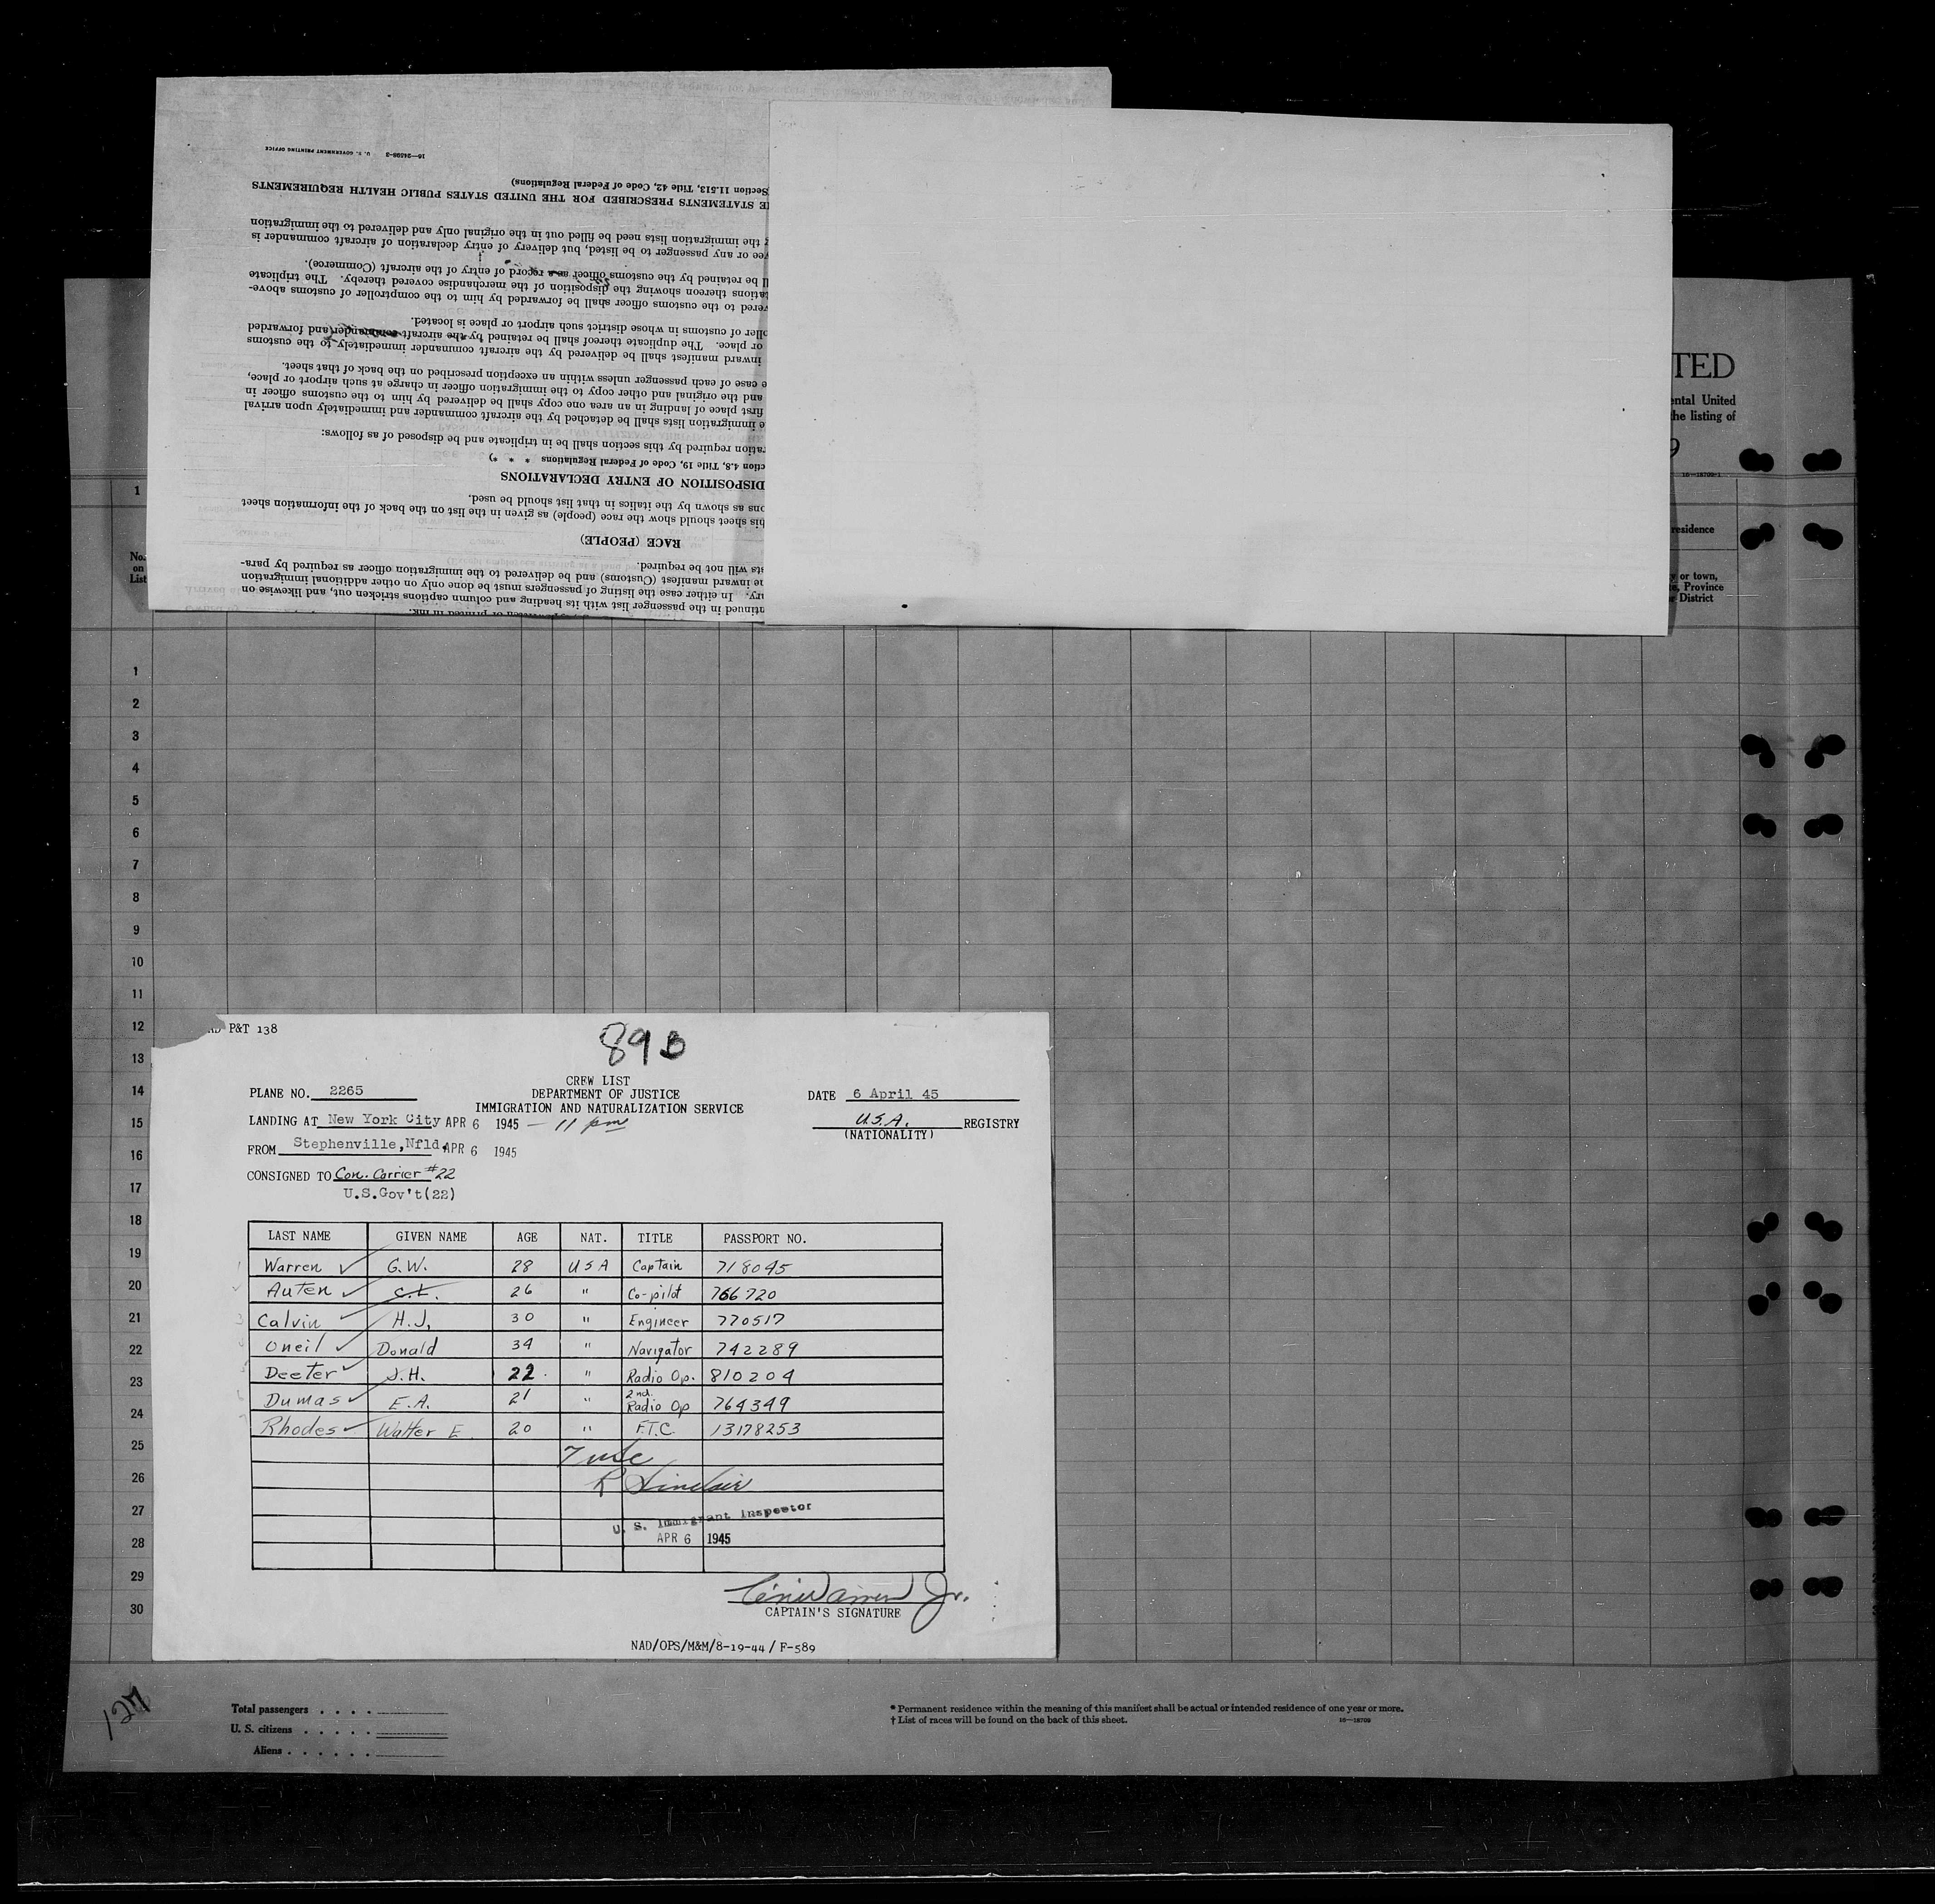 16—24598-3 U. S. GOVERNMENT PRINTING OFFICE
Section 11.513, Title 42, Code of Federal Regulations)
E STATEMENTS PRESCRIBED FOR THE UNITED STATES PUBLIC HEALTH REQUIREMENTS
the immigration lists need be filled out in the original only and delivered to the immigration
ee or any passenger to be listed, but delivery of entry declaration of aircraft commander is
ll be retained by the customs officer as a record of entry of the aircraft (Commerce).
tations thereon showing the disposition of the merchandise covered thereby. The triplicate
vered to the customs officer shall be forwarded by him to the comptroller of customs above-
ller of customs in whose district such airport or place is located.
or place. The duplicate thereof shall be retained by the aircraft commander and forwarded
inward manifest shall be delivered by the aircraft commander immediately to the customs
e case of each passenger unless within an exception prescribed on the back of that sheet.
and the original and other copy to the immigration officer in charge at such airport or place,
first place of landing in an area one copy shall be delivered by him to the customs officer in
e immigration lists shall be detached by the aircraft commander and immediately upon arrival
ration required by this section shall be in triplicate and be disposed of as follows:
ction 4.8, Title 19, Code of Federal Regulations * * *)
DISPOSITION OF ENTRY DECLARATIONS
ons as shown by the italics in that list should be used.
his sheet should show the race (people) as given in the list on the back of the information sheet
RACE (PEOPLE)
sts will not be required.
he inward manifest (Customs) and be delivered to the immigration officer as required by para-
ry. In either case the listing of passengers must be done only on other additional immigration
ntinued in the passenger list with its heading and column captions stricken out, and likewise on
TED
ental United
the listing of
9
16—18709-1
residence
y or town,
te, Province
or District
1
No. on List
1
2
3
4
5
6
7
8
9
10
11
12
13
14
15
16
17
18
19
20
21
22
23
24
25
26
27
28
29
30
P&T 138
89
CREW LIST
PLANE NO. 2265 DEPARTMENT OF JUSTICE DATE 6 April 45
IMMIGRATION AND NATURALIZATION SERVICE
LANDING AT New York City APR 6 1945 — 11 pm U.S.A. REGISTRY
(NATIONALITY)
FROM Stephenville, Nfld. APR 6 1945
CONSIGNED TO Con. Carrier #22
U.S.Gov't(22)
LAST NAME GIVEN NAME AGE NAT. TITLE PASSPORT NO.
Warren G.W. 28 USA Captain 718045
Auten C.L. 26 " Co-pilot 766720
Calvin H.J. 30 " Engineer 770517
Oneil Donald 34 " Navigator 742289
Deeter J.H. 22 " Radio Op. 810204
Dumas E.A. 21 " 2nd. Radio Op 764349
Rhodes Walter E. 20 " F.T.C. 13178253
7 usc
R Sinclair
U. S. Immigrant Inspector
APR 6 1945
Warren Jr.
CAPTAIN'S SIGNATURE
NAD/OPS/M&M/8-19-44 / F-589
127
Total passengers . . . .
U. S. citizens . . . . .
Aliens . . . . . .
* Permanent residence within the meaning of this manifest shall be actual or intended residence of one year or more.
† List of races will be found on the back of this sheet.
16—18709